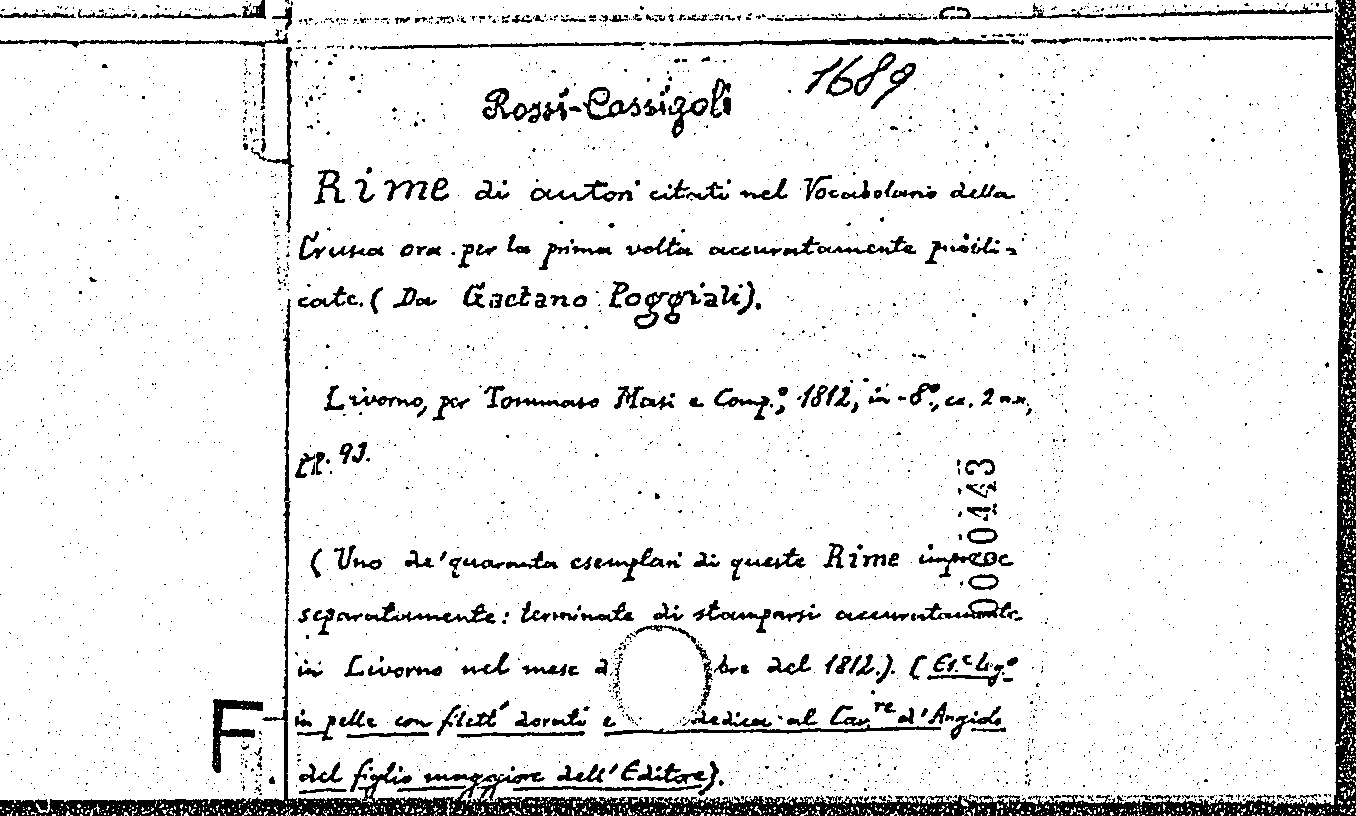 1689
Rossi-Cassigoli
Rime di autori citati nel Vocabolario della
Crusca ora per la prima volta accuratamente pubbli-
cate. (Da Gaetano Poggiali).
Livorno, per Tommaso Masi e Comp.º, 1812, in-8º, cc. 2 nn,
pp. 93.
(Uno de' quaranta esemplari di queste Rime impresse
separatamente: terminate di stamparsi accuratamente
in Livorno nel mese d bre del 1812.). (Es.e leg.º
in pelle con filetti dorati e dedica al Cav.re d'Angiolo
del figlio maggiore dell'Editore).
000443
F